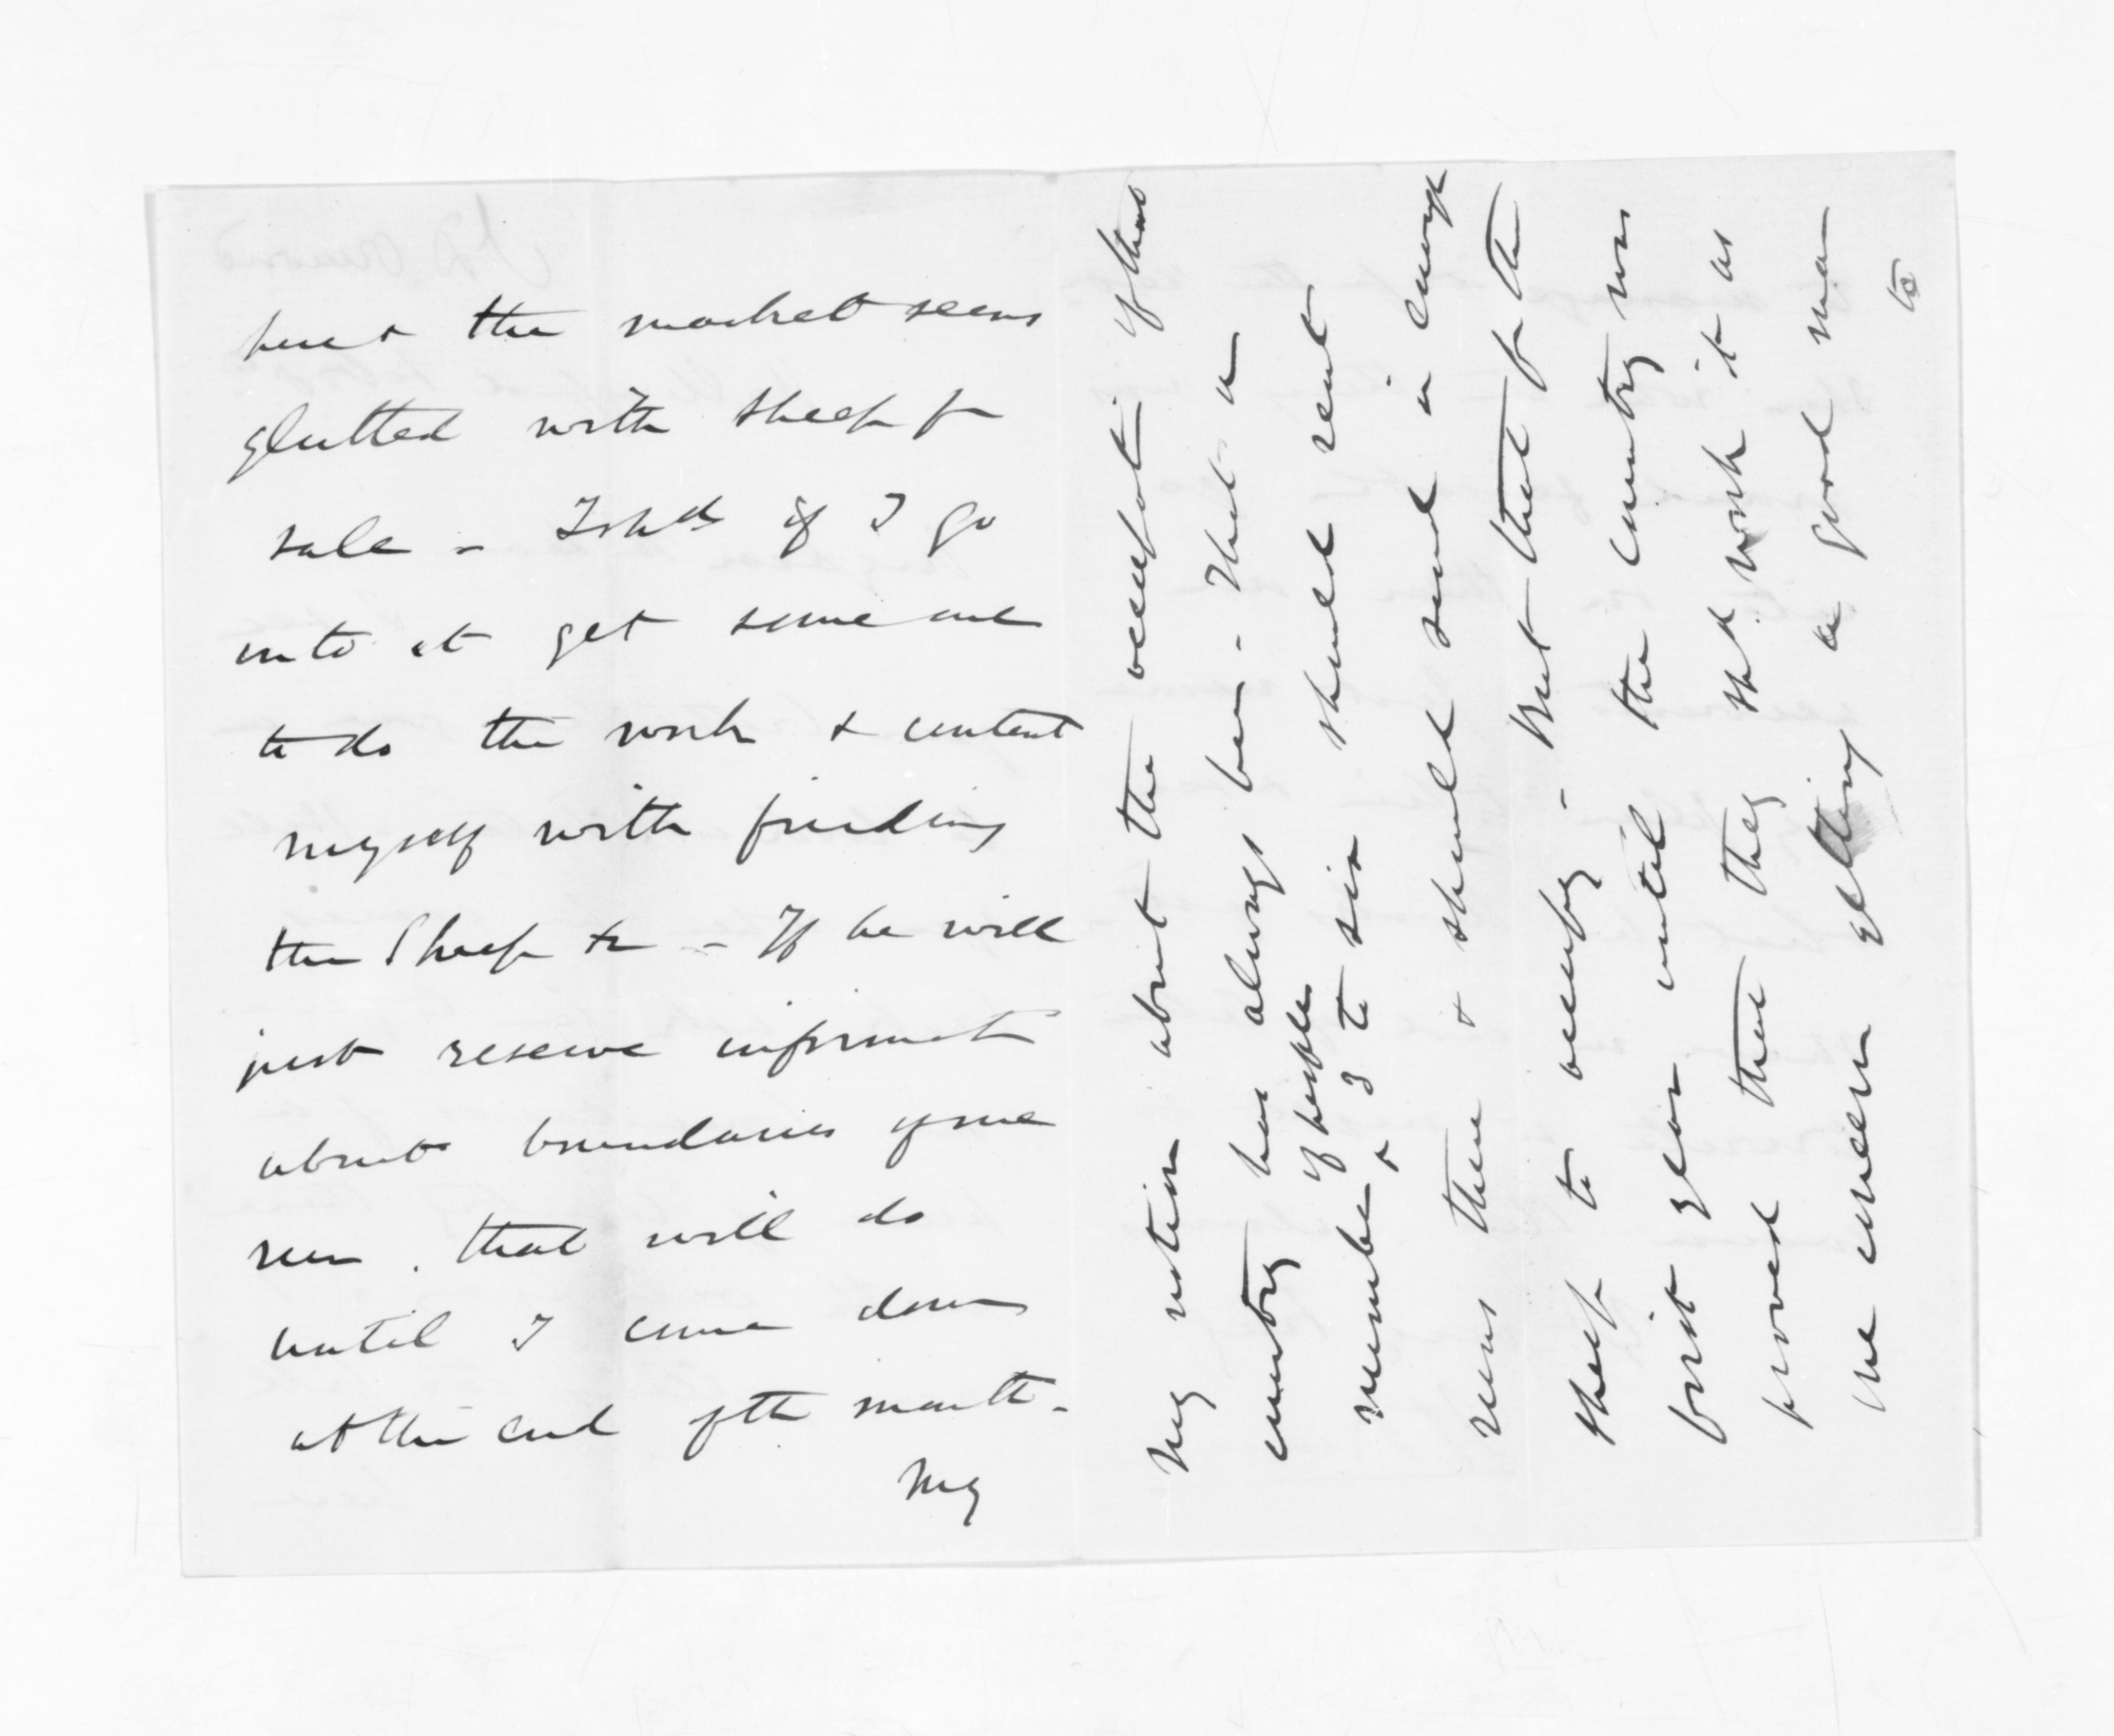 here & the market seems
glutted with sheep for
sale - I shd if I go
into it get some one
to do the work & content
myself with finding
the Sheep &c - If he will
just reserve informat
about boundaries of one
run. that will do
until I come down
at the end of the month -
My
My notion about the occupatn of that
country has always been - that a
number of people & I to six should rent
runs there & should send in enough
sheep to occupy - but that for the
first year until the country was
proved that they shd work it as
one concern getting a good man
to